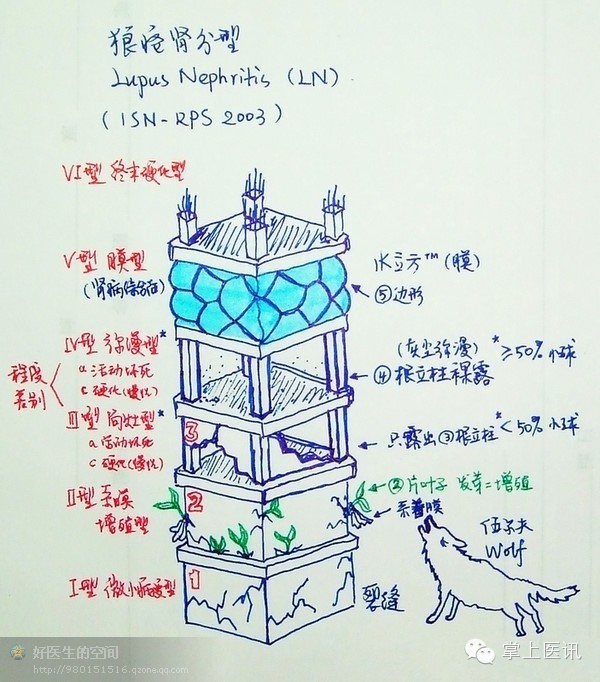 狼疮肾分型
Lupus Nephritis (LN)
(ISN-RPS 2003)
VI型 终末硬化型
V型 膜型
(肾病综合征)
水立方™(膜)
⑤边形
IV型 弥漫型*
a 活动坏死
c 硬化(慢性)
(灰尘弥漫)* ≥50%小球
④根立柱裸露
程度
差别
III型 局灶型*
a 活动坏死
c 硬化(慢性)
3
只露出③根立柱* <50%小球
II型 系膜
增殖型
2
②片叶子 发芽=增殖
系着膜
I型 微小病变型
1
裂缝
伍尔夫
Wolf
好医生的空间
http://980151516.qzone.qq.com
掌上医讯